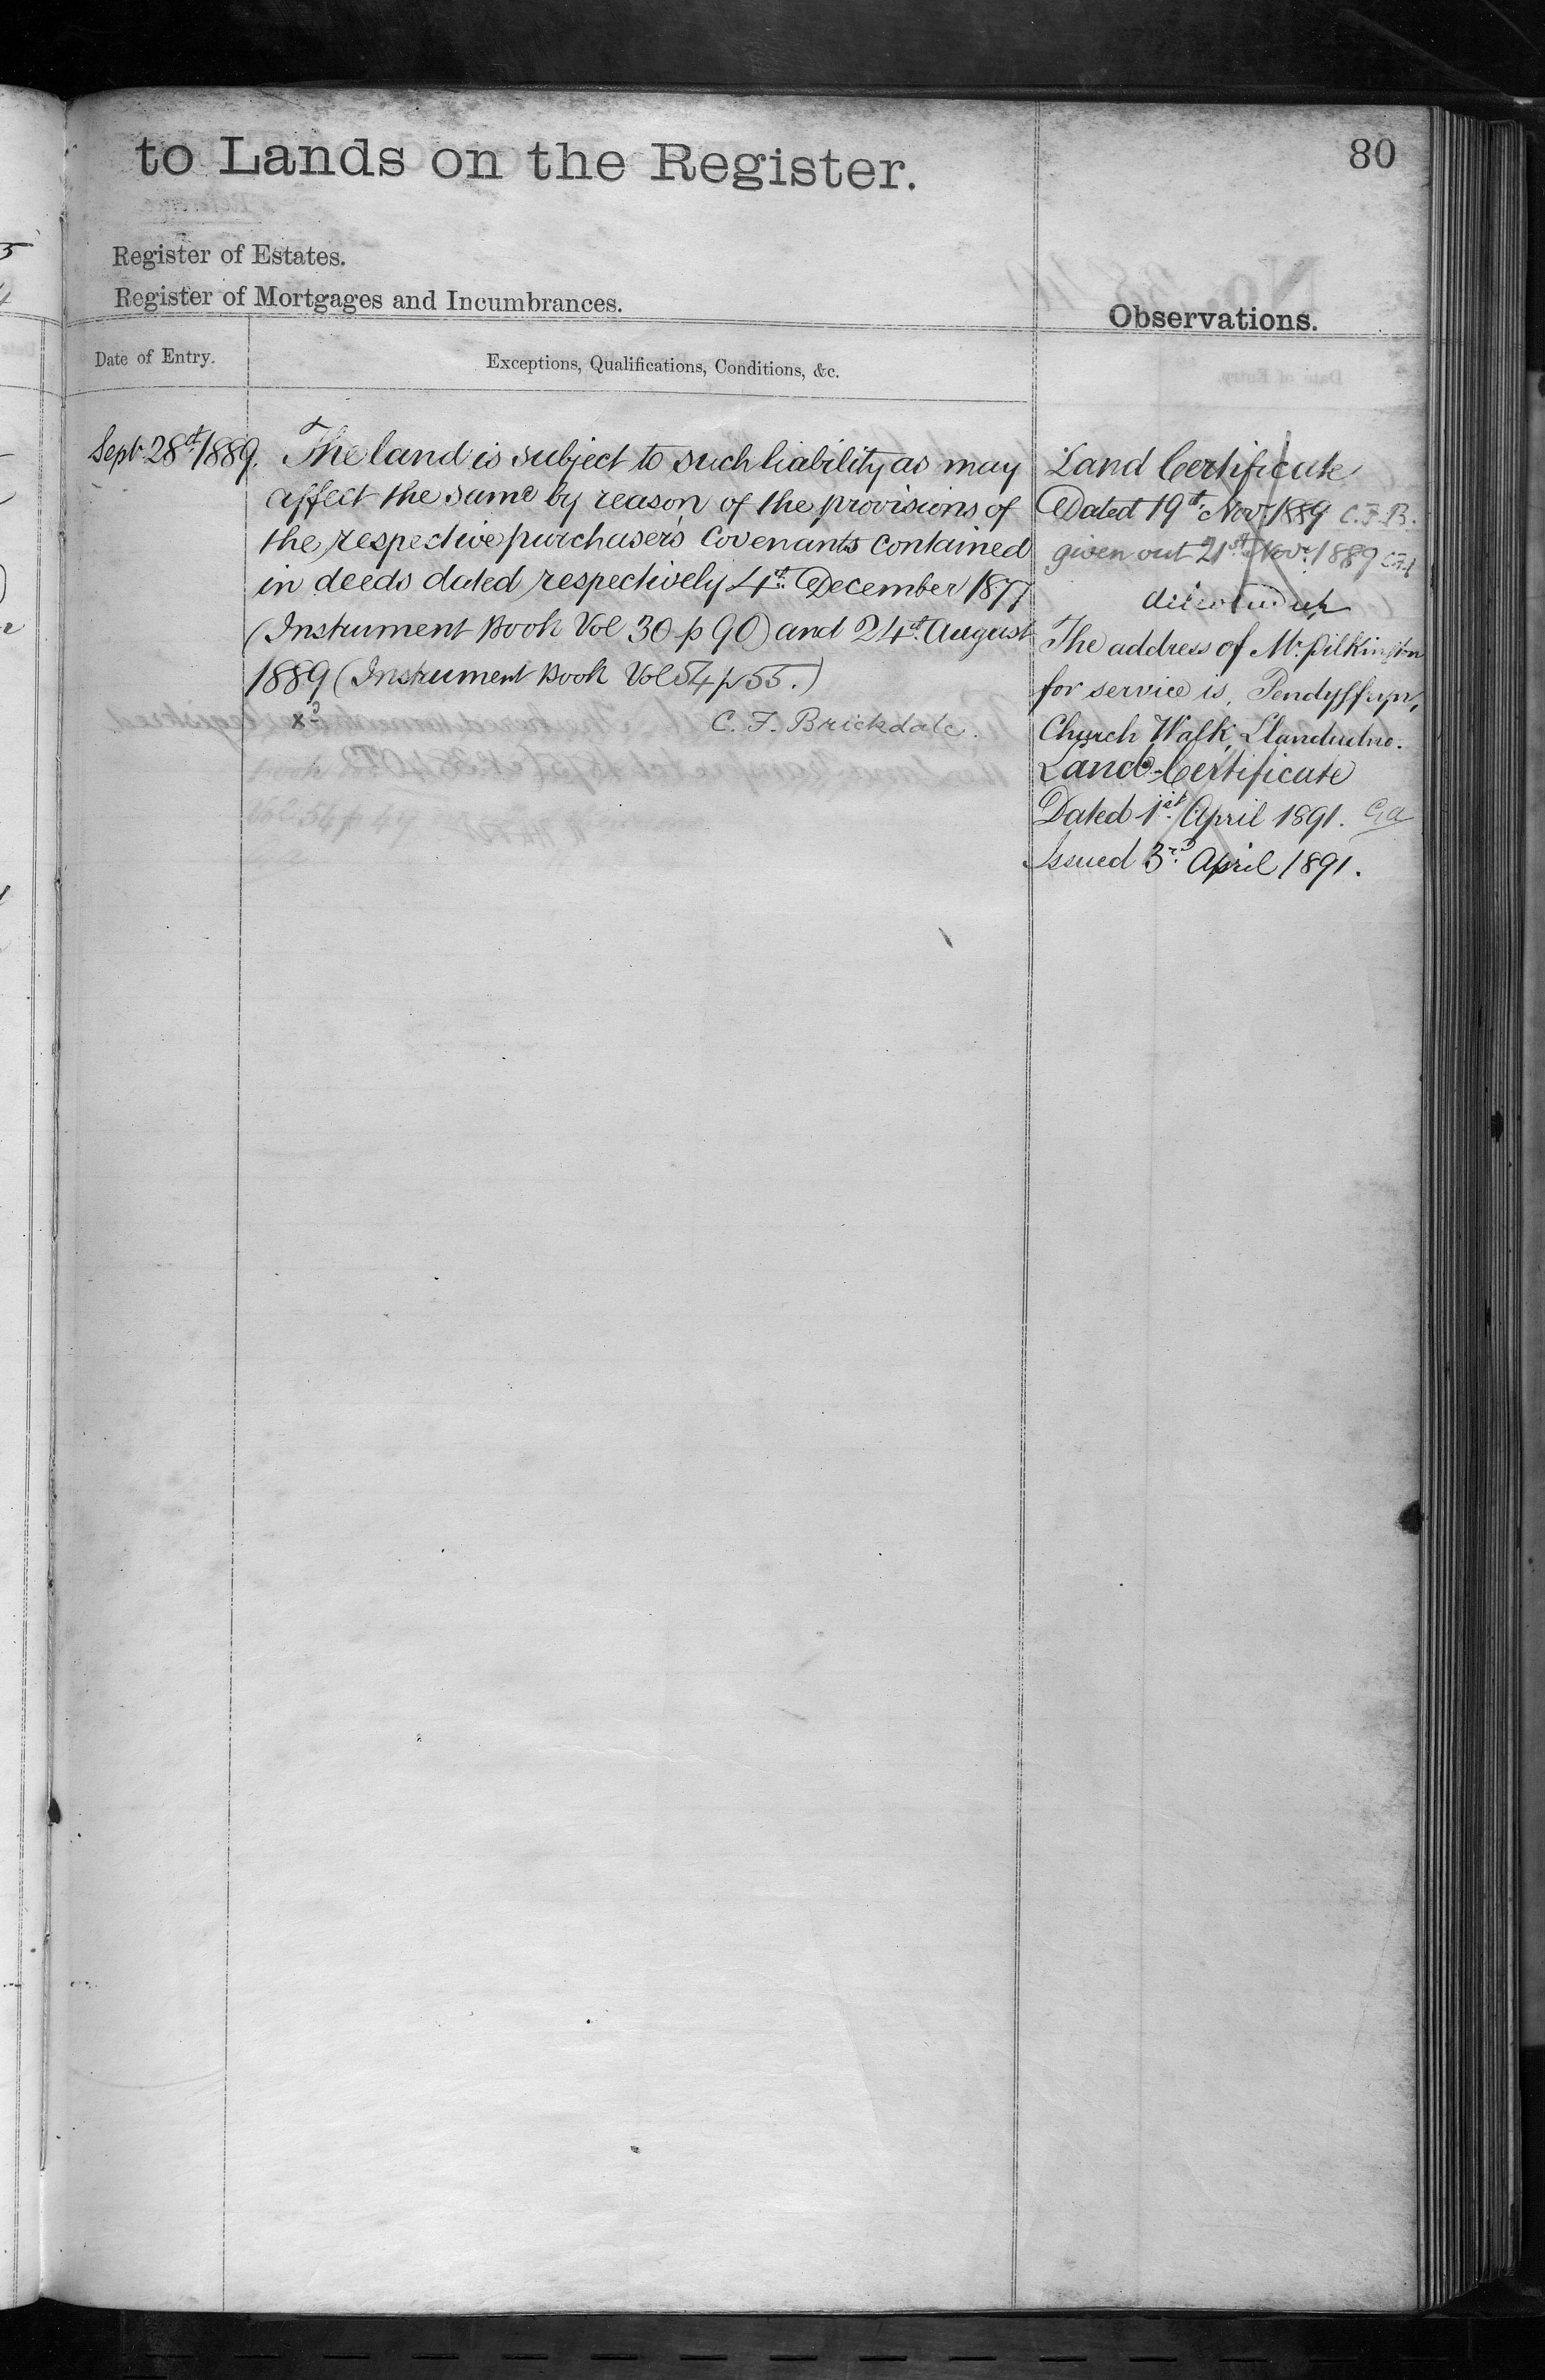 to Lands on the Register.
80
Register of Estates.
Register of Mortgages and Incumbrances.
Observations.
Date of Entry.
Exceptions, Qualifications, Conditions, &c.
Sept. 28th 1889.
The land is subject to such liability as may
affect the same by reason of the provisions of
the respective purchaser's Covenants contained
in deeds dated respectively 4th December 1877
(Instrument Book Vol 30 p 90) and 24th August
1889 (Instrument Book Vol 54 p 55.)
xd
C. F. Brickdale.
Land Certificate
Dated 19th Novr 1889 C.F.B.
given out 21st Novr 1889
The address of Mr. Pilkington
for service is, Pendyffryn,
Church Walk, Llandudno.
Land Certificate
Dated 1st April 1891.
Issued 3rd April 1891.